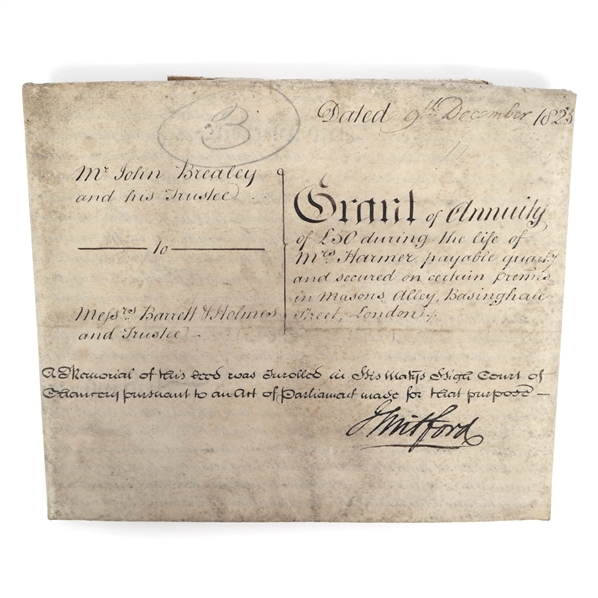 B
Dated 9th December 1825
Mr John Brealey
and his Trustee
to
Messrs Barrett & Holmes
and Trustee
Grant of Annuity
of £50 during the life of
Mrs Harmer payable quarty
and secured on certain premes
in Masons Alley, Basinghall
Street, London
A Memorial of this deed was Inrolled in His Matys High Court of
Chancery pursuant to an Act of Parliament made for that purpose
Mitford